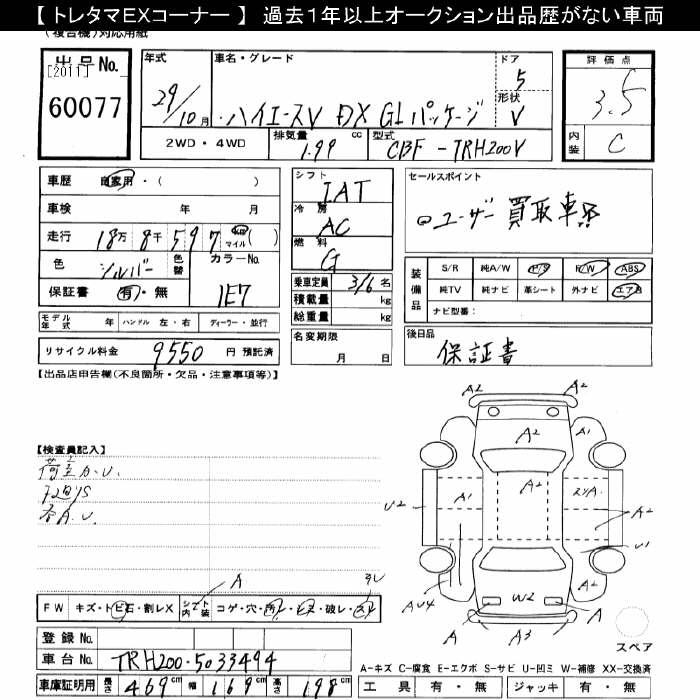 【 トレタマEXコーナー 】 過去1年以上オークション出品歴がない車両
(複合機)対応用紙
出品No.
[2011]
60077
年式
29/10月
車名・グレード
ハイエースV DX GLパッケージ
ドア
5
形状
V
評価点
3.5
内装
C
2WD・4WD
排気量
1.99 cc
型式
CBF-TRH200V
車歴 自家用・( )
車検 年 月
走行 18万 8千 5 9 7 km マイル ( )
色 シルバー 色替
カラーNo.
1E7
保証書 有・無
シフト
IAT
冷房
AC
燃料
G
乗車定員 3/6 名
積載量 kg
総重量 kg
名変期限
月 日
セールスポイント
ユーザー買取車
装備品
S/R 純A/W P/S P/W ABS
純TV 純ナビ 革シート 外ナビ エアB
ナビ型番:
モデル年式 年 ハンドル 左・右 ディーラー・並行
リサイクル料金 9550 円 預託済
後日品
保証書
【出品店申告欄(不良箇所・欠品・注意事項等)】
【検査員記入】
A2 A2
A2
A1
A2
A1
U2
A2
U1
AU4
W2
A A
A3
スペア
A
FW キズ・トビ石・割レX シフト 内装 コゲ・穴・
登録No.
車台No. TRH200-5033494
車庫証明用 長さ 469 cm 幅 169 cm 高さ 198 cm
A-キズ C-腐食 E-エクボ S-サビ U-凹ミ W-補修 XX-交換済
工具 有・無 ジャッキ 有・無